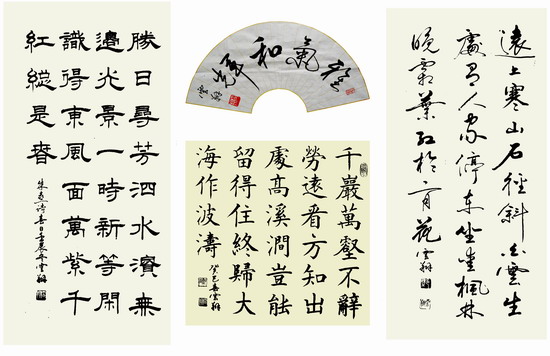 遠上寒山石徑斜白雲生
處有人家停車坐愛楓林
晚霜葉紅於二月花
雲翔
氣和
雲翔
千巖萬壑不辭
勞遠看方知出
處高溪澗豈能
留得住終歸大
海作波濤
癸巳春雲翔
勝日尋芳泗水濱無
邊光景一時新等閑
識得東風面萬紫千
紅縂是春
朱熹詩春日壬辰年雲翔